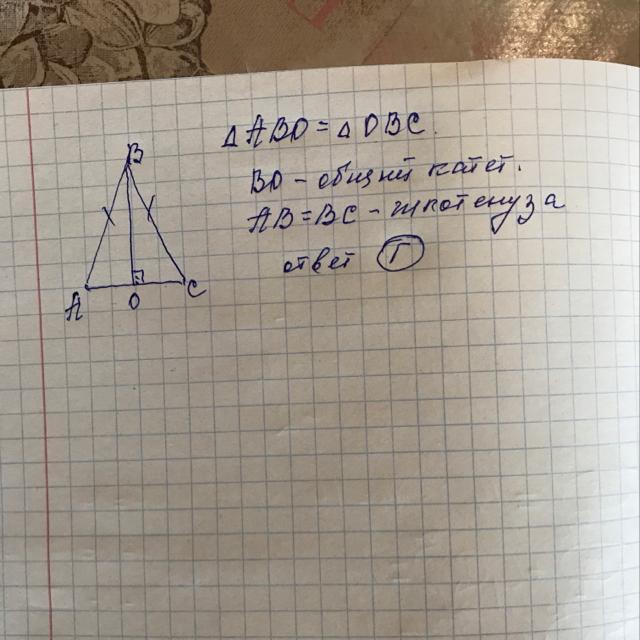 △ABO = △OBC.
BO - общий катет.
AB = BC - гипотенуза
ответ Г
B
A
O
C